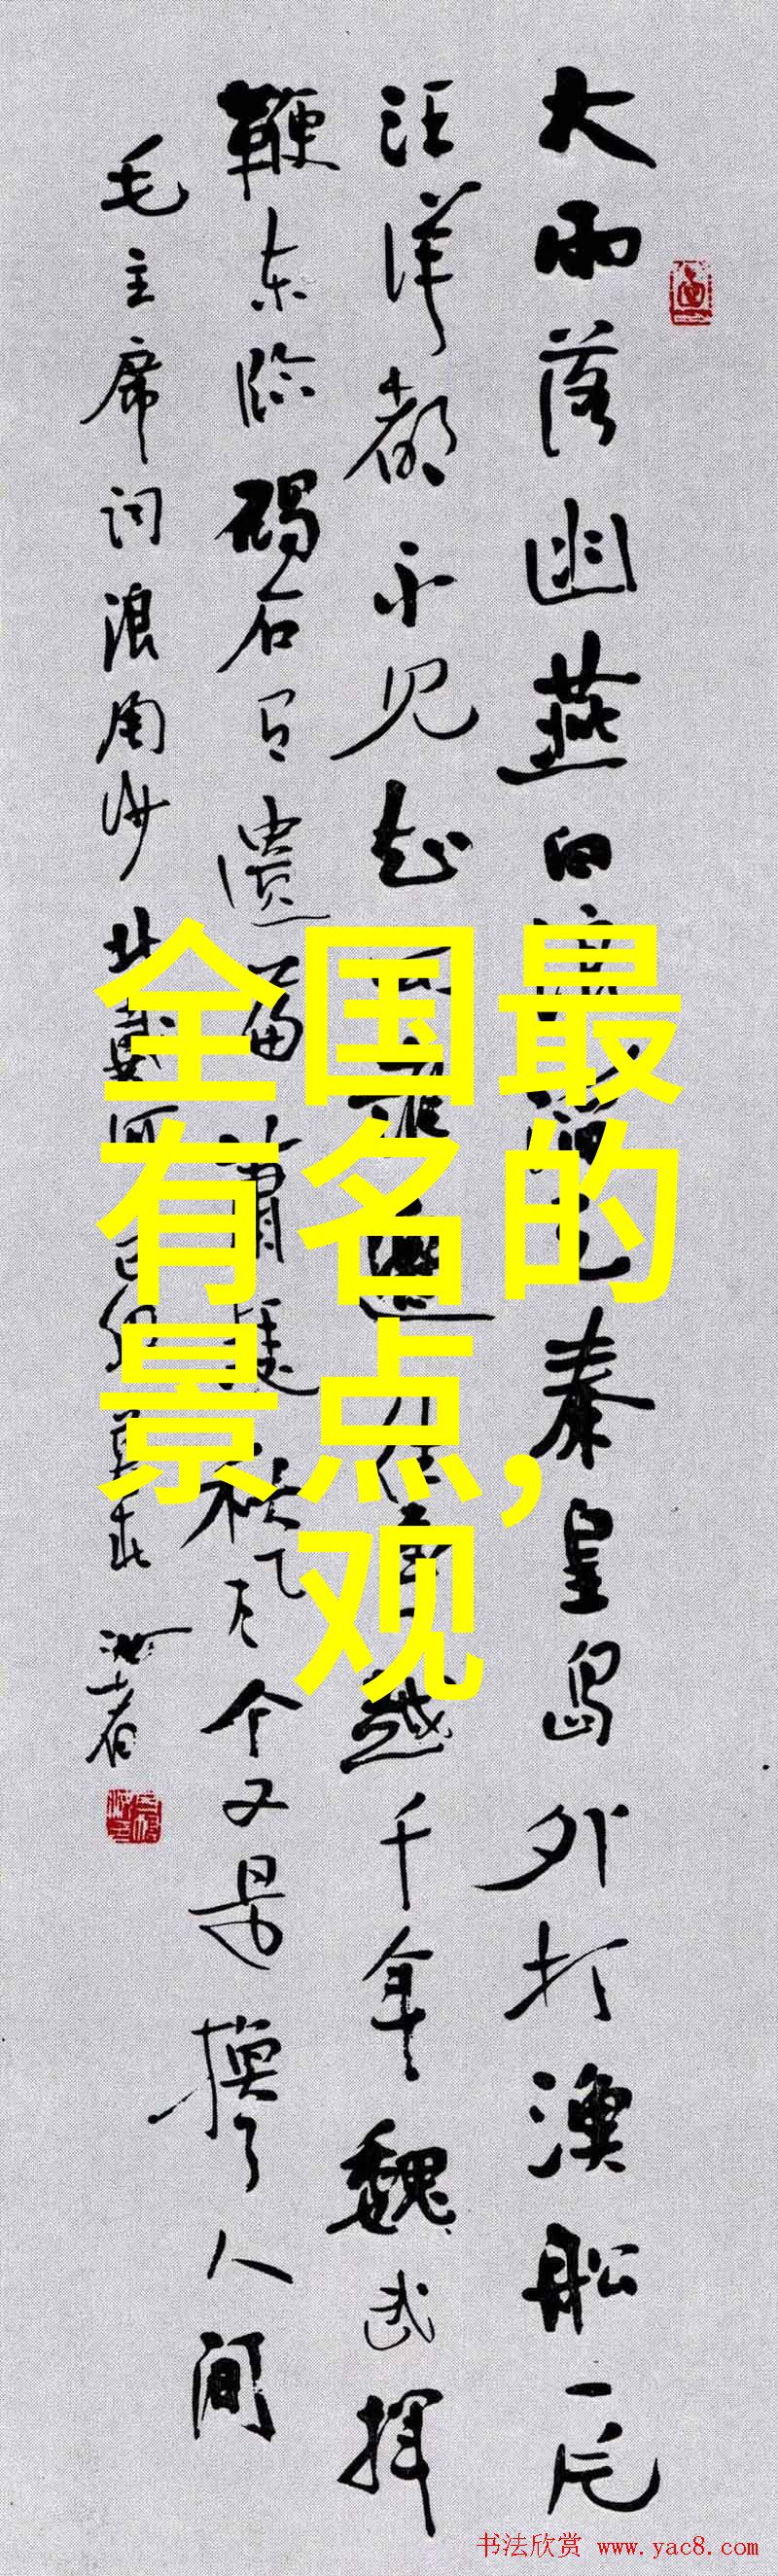 全国最
有名的
景点，
观
大雨落幽燕白浪滔天秦皇岛外打漁船一片
汪洋都不见知向谁边往事越千年魏武挥
鞭东临碣石有遗篇萧瑟秋风今又是换了人间
毛主席词浪淘沙北戴河
书法欣赏 www.yac8.com